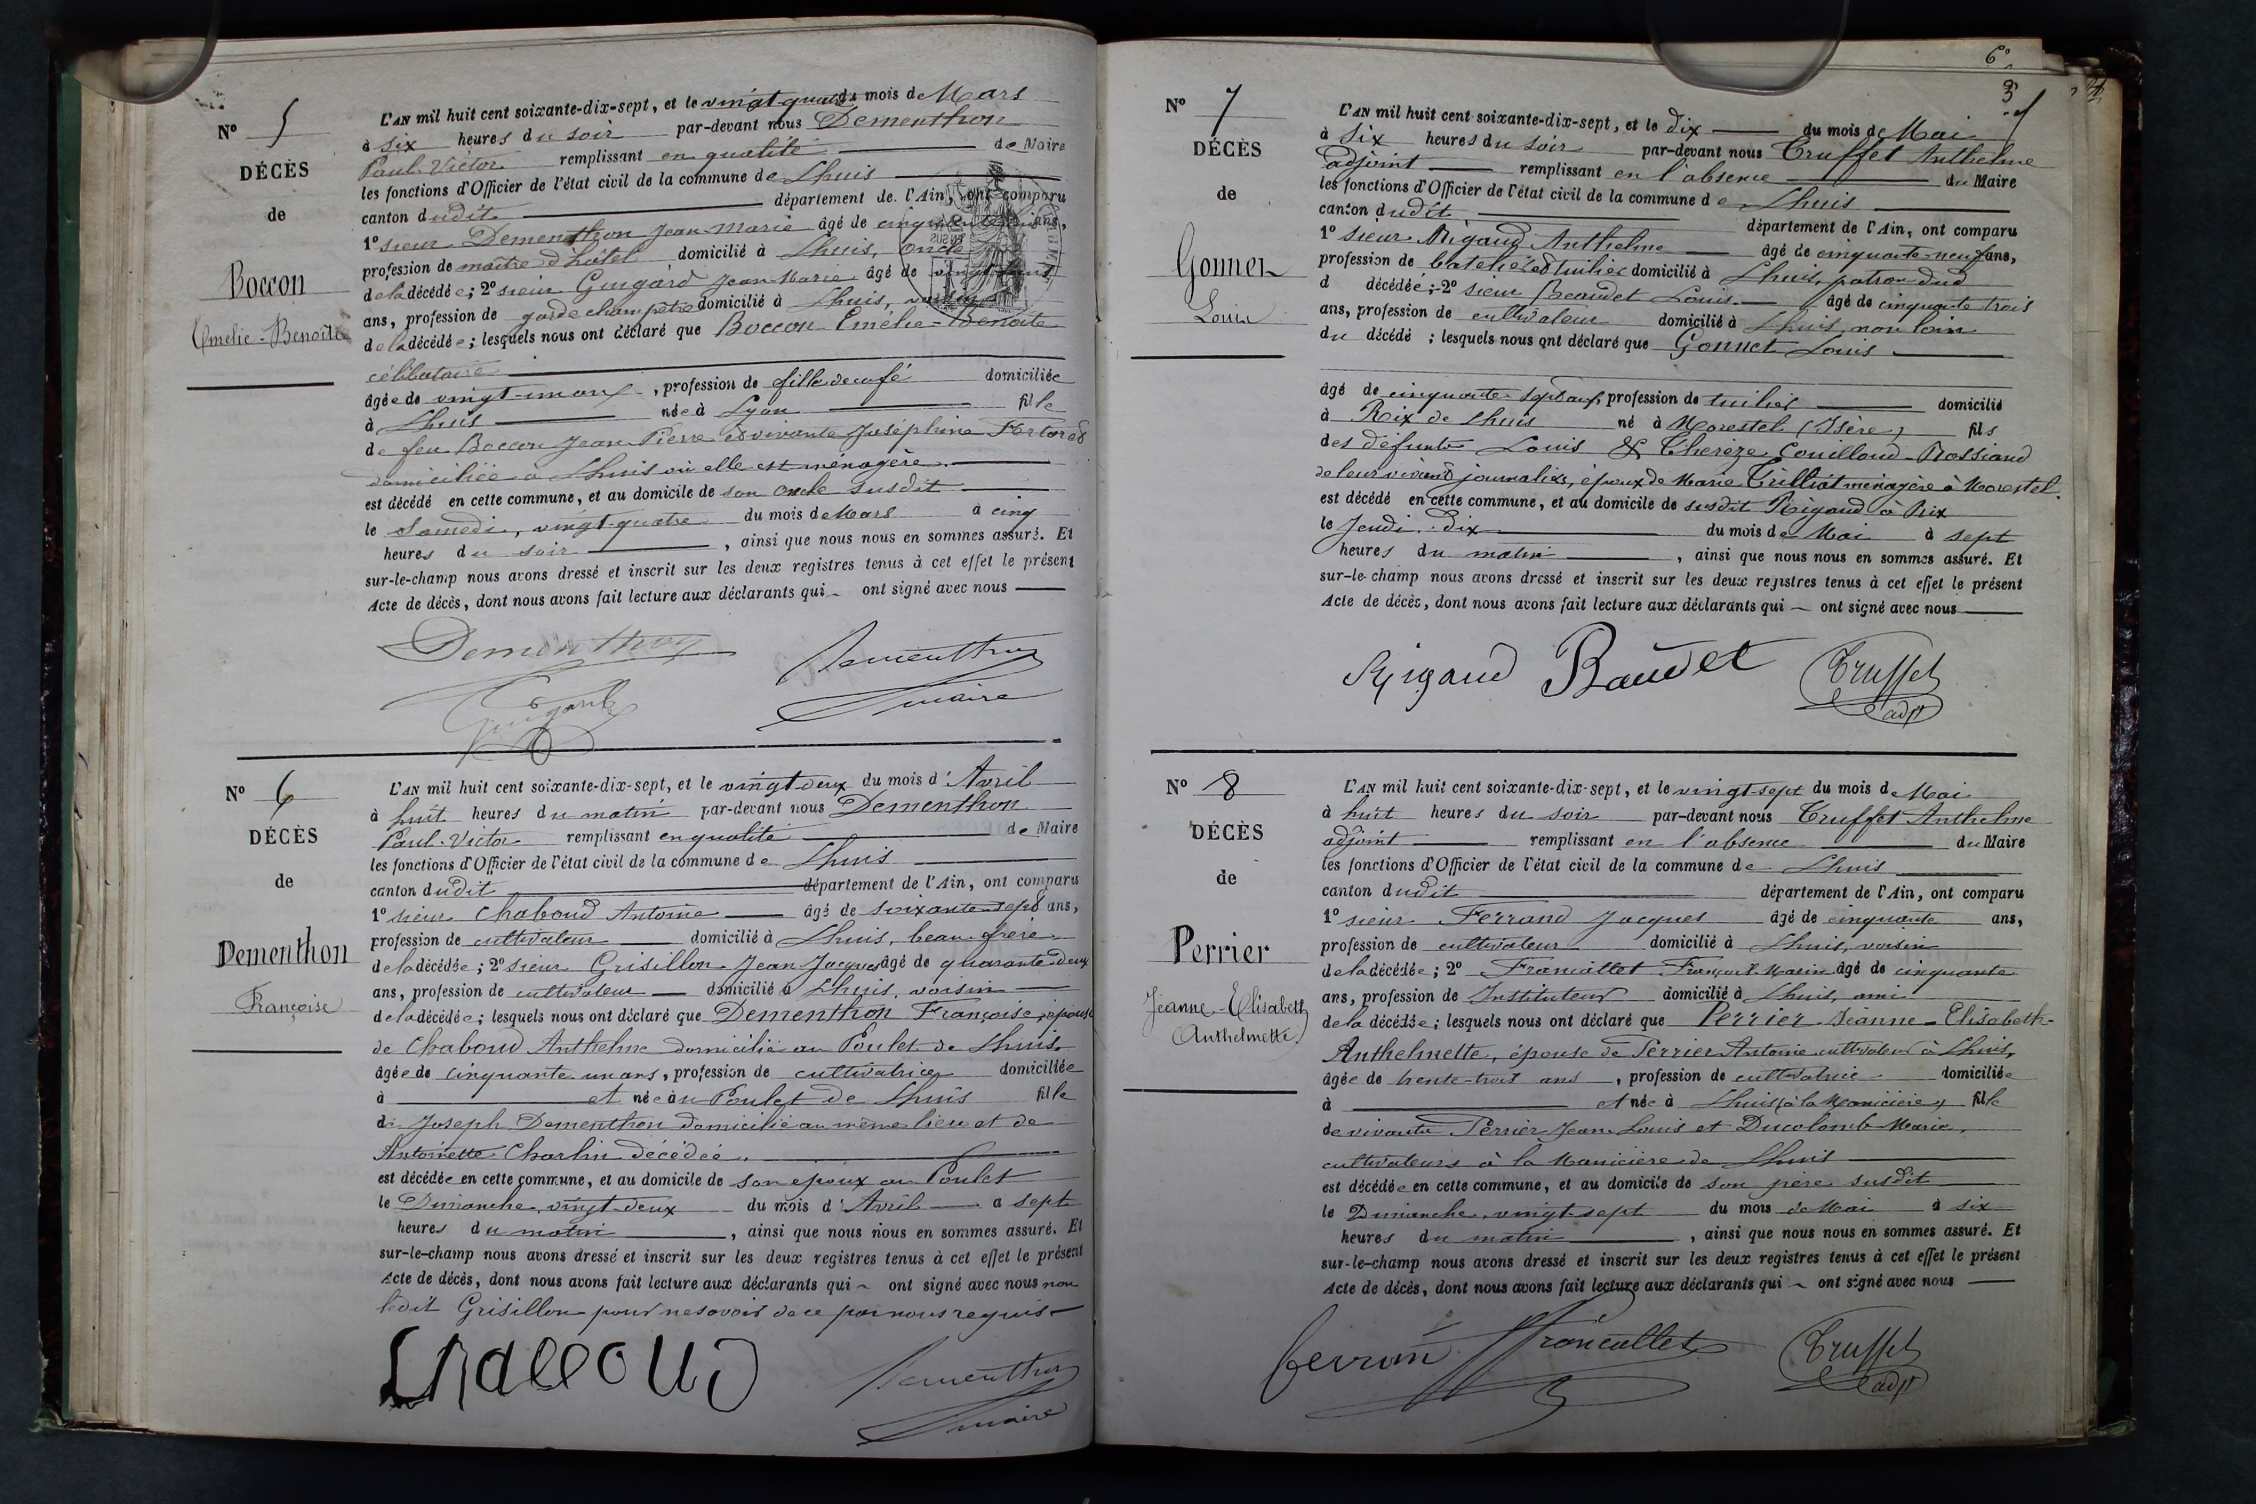 N° 5
DÉCÈS
de
Boccon
Emelie-Benoîte
L'AN mil huit cent soixante-dix-sept, et le vingt quatre du mois de Mars
à six heures du soir par-devant nous Dementhon
Paul Victor remplissant en qualité de Maire
les fonctions d'Officier de l'état civil de la commune de Lhuis
canton dudit département de l'Ain, ont comparu
1° sieur Dementhon Jean-Marie âgé de cinquante ans,
profession de maître d'hôtel domicilié à Lhuis, oncle
de la décédée; 2° sieur Guigard Jean Marie âgé de
ans, profession de garde champêtre domicilié à Lhuis, voisin
de la décédée; lesquels nous ont déclaré que Boccon Emélie-Benoîte
célibataire
âgée de vingt-un ans, profession de fille de café domiciliée
à Lhuis née à Lyon fille
de feu Boccon Jean Pierre et vivante Joséphine
domiciliée à Lhuis où elle est ménagère
est décédé en cette commune, et au domicile de son oncle susdit
le Samedi, vingt-quatre du mois de Mars à cinq
heures du soir, ainsi que nous nous en sommes assuré. Et
sur-le-champ nous avons dressé et inscrit sur les deux registres tenus à cet effet le présent
Acte de décès, dont nous avons fait lecture aux déclarants qui ont signé avec nous
Dementhon Dementhon
Guigard maire
N° 6
DÉCÈS
de
Dementhon
Françoise
L'AN mil huit cent soixante-dix-sept, et le vingt deux du mois d'Avril
à huit heures du matin par-devant nous Dementhon
Paul-Victor remplissant en qualité de Maire
les fonctions d'Officier de l'état civil de la commune de Lhuis
canton dudit département de l'Ain, ont comparu
1° sieur Chaboud Antoine âgé de soixante-sept ans,
profession de cultivateur domicilié à Lhuis, beau-frère
de la décédée; 2° sieur Grisillon Jean Jacques âgé de quarante deux
ans, profession de cultivateur domicilié à Lhuis, voisin
de la décédée; lesquels nous ont déclaré que Dementhon Françoise, épouse
de Chaboud Anthelme domicilié au Poulet de Lhuis
âgée de cinquante un ans, profession de cultivatrice domiciliée
à et née au Poulet de Lhuis fille
de Joseph Dementhon domicilié au même lieu et de
Antoinette Charlin décédée
est décédée en cette commune, et au domicile de son époux au Poulet
le Dimanche, vingt-deux du mois d'Avril à sept
heures du matin, ainsi que nous nous en sommes assuré. Et
sur-le-champ nous avons dressé et inscrit sur les deux registres tenus à cet effet le présent
Acte de décès, dont nous avons fait lecture aux déclarants qui ont signé avec nous non
ledit Grisillon pour ne savoir de ce par nous requis
Chaboud Dementhon
maire
6
3
N° 7
DÉCÈS
de
Gonnet
Louis
L'AN mil huit cent soixante-dix-sept, et le dix du mois de Mai
à six heures du soir par-devant nous Truffet Anthelme
adjoint remplissant en l'absence du Maire
les fonctions d'Officier de l'état civil de la commune de Lhuis
canton dudit département de l'Ain, ont comparu
1° sieur Rigaud Anthelme âgé de cinquante-neuf ans,
profession de batelier et tuilier domicilié à Lhuis, patron dud
d décédée; 2° sieur Beaudet Louis âgé de cinquante trois
ans, profession de cultivateur domicilié à Lhuis, non loin
du décédé; lesquels nous ont déclaré que Gonnet Louis
âgé de cinquante-sept ans, profession de tuilier domicilié
à Rix de Lhuis né à Morestel (Isère) fils
des défunts Louis & Thérèze Couilloud-Rossiaud
de leur vivant journaliers, époux de Marie Trilliat ménagère à Morestel.
est décédé en cette commune, et au domicile de susdit Rigaud à Rix
le Jeudi dix du mois de Mai à sept
heures du matin, ainsi que nous nous en sommes assuré. Et
sur-le-champ nous avons dressé et inscrit sur les deux registres tenus à cet effet le présent
Acte de décès, dont nous avons fait lecture aux déclarants qui ont signé avec nous
Rigaud Baudet Truffet
adjt
N° 8
DÉCÈS
de
Perrier
Jeanne-Elisabeth
Anthelmette
L'AN mil huit cent soixante-dix-sept, et le vingt-sept du mois de Mai
à huit heures du soir par-devant nous Truffet Anthelme
adjoint remplissant en l'absence du Maire
les fonctions d'Officier de l'état civil de la commune de Lhuis
canton dudit département de l'Ain, ont comparu
1° sieur Ferrand Jacques âgé de cinquante ans,
profession de cultivateur domicilié à Lhuis, voisin
de la décédée; 2° Francallet François Marin âgé de cinquante
ans, profession de Instituteur domicilié à Lhuis, ami
de la décédée; lesquels nous ont déclaré que Perrier Jeanne-Elisabeth-
Anthelmette, épouse de Perrier Antoine cultivateur à Lhuis,
âgée de trente-trois ans, profession de cultivatrice domiciliée
à et née à Lhuis (à la Manicière) fille
de vivants Perrier Jean Louis et Ducolomb Marie,
cultivateurs à la Manicière de Lhuis
est décédée en cette commune, et au domicile de son père susdit
le Dimanche, vingt-sept du mois de Mai à six
heures du matin, ainsi que nous nous en sommes assuré. Et
sur-le-champ nous avons dressé et inscrit sur les deux registres tenus à cet effet le présent
Acte de décès, dont nous avons fait lecture aux déclarants qui ont signé avec nous
Ferrand Francallet Truffet
adjt